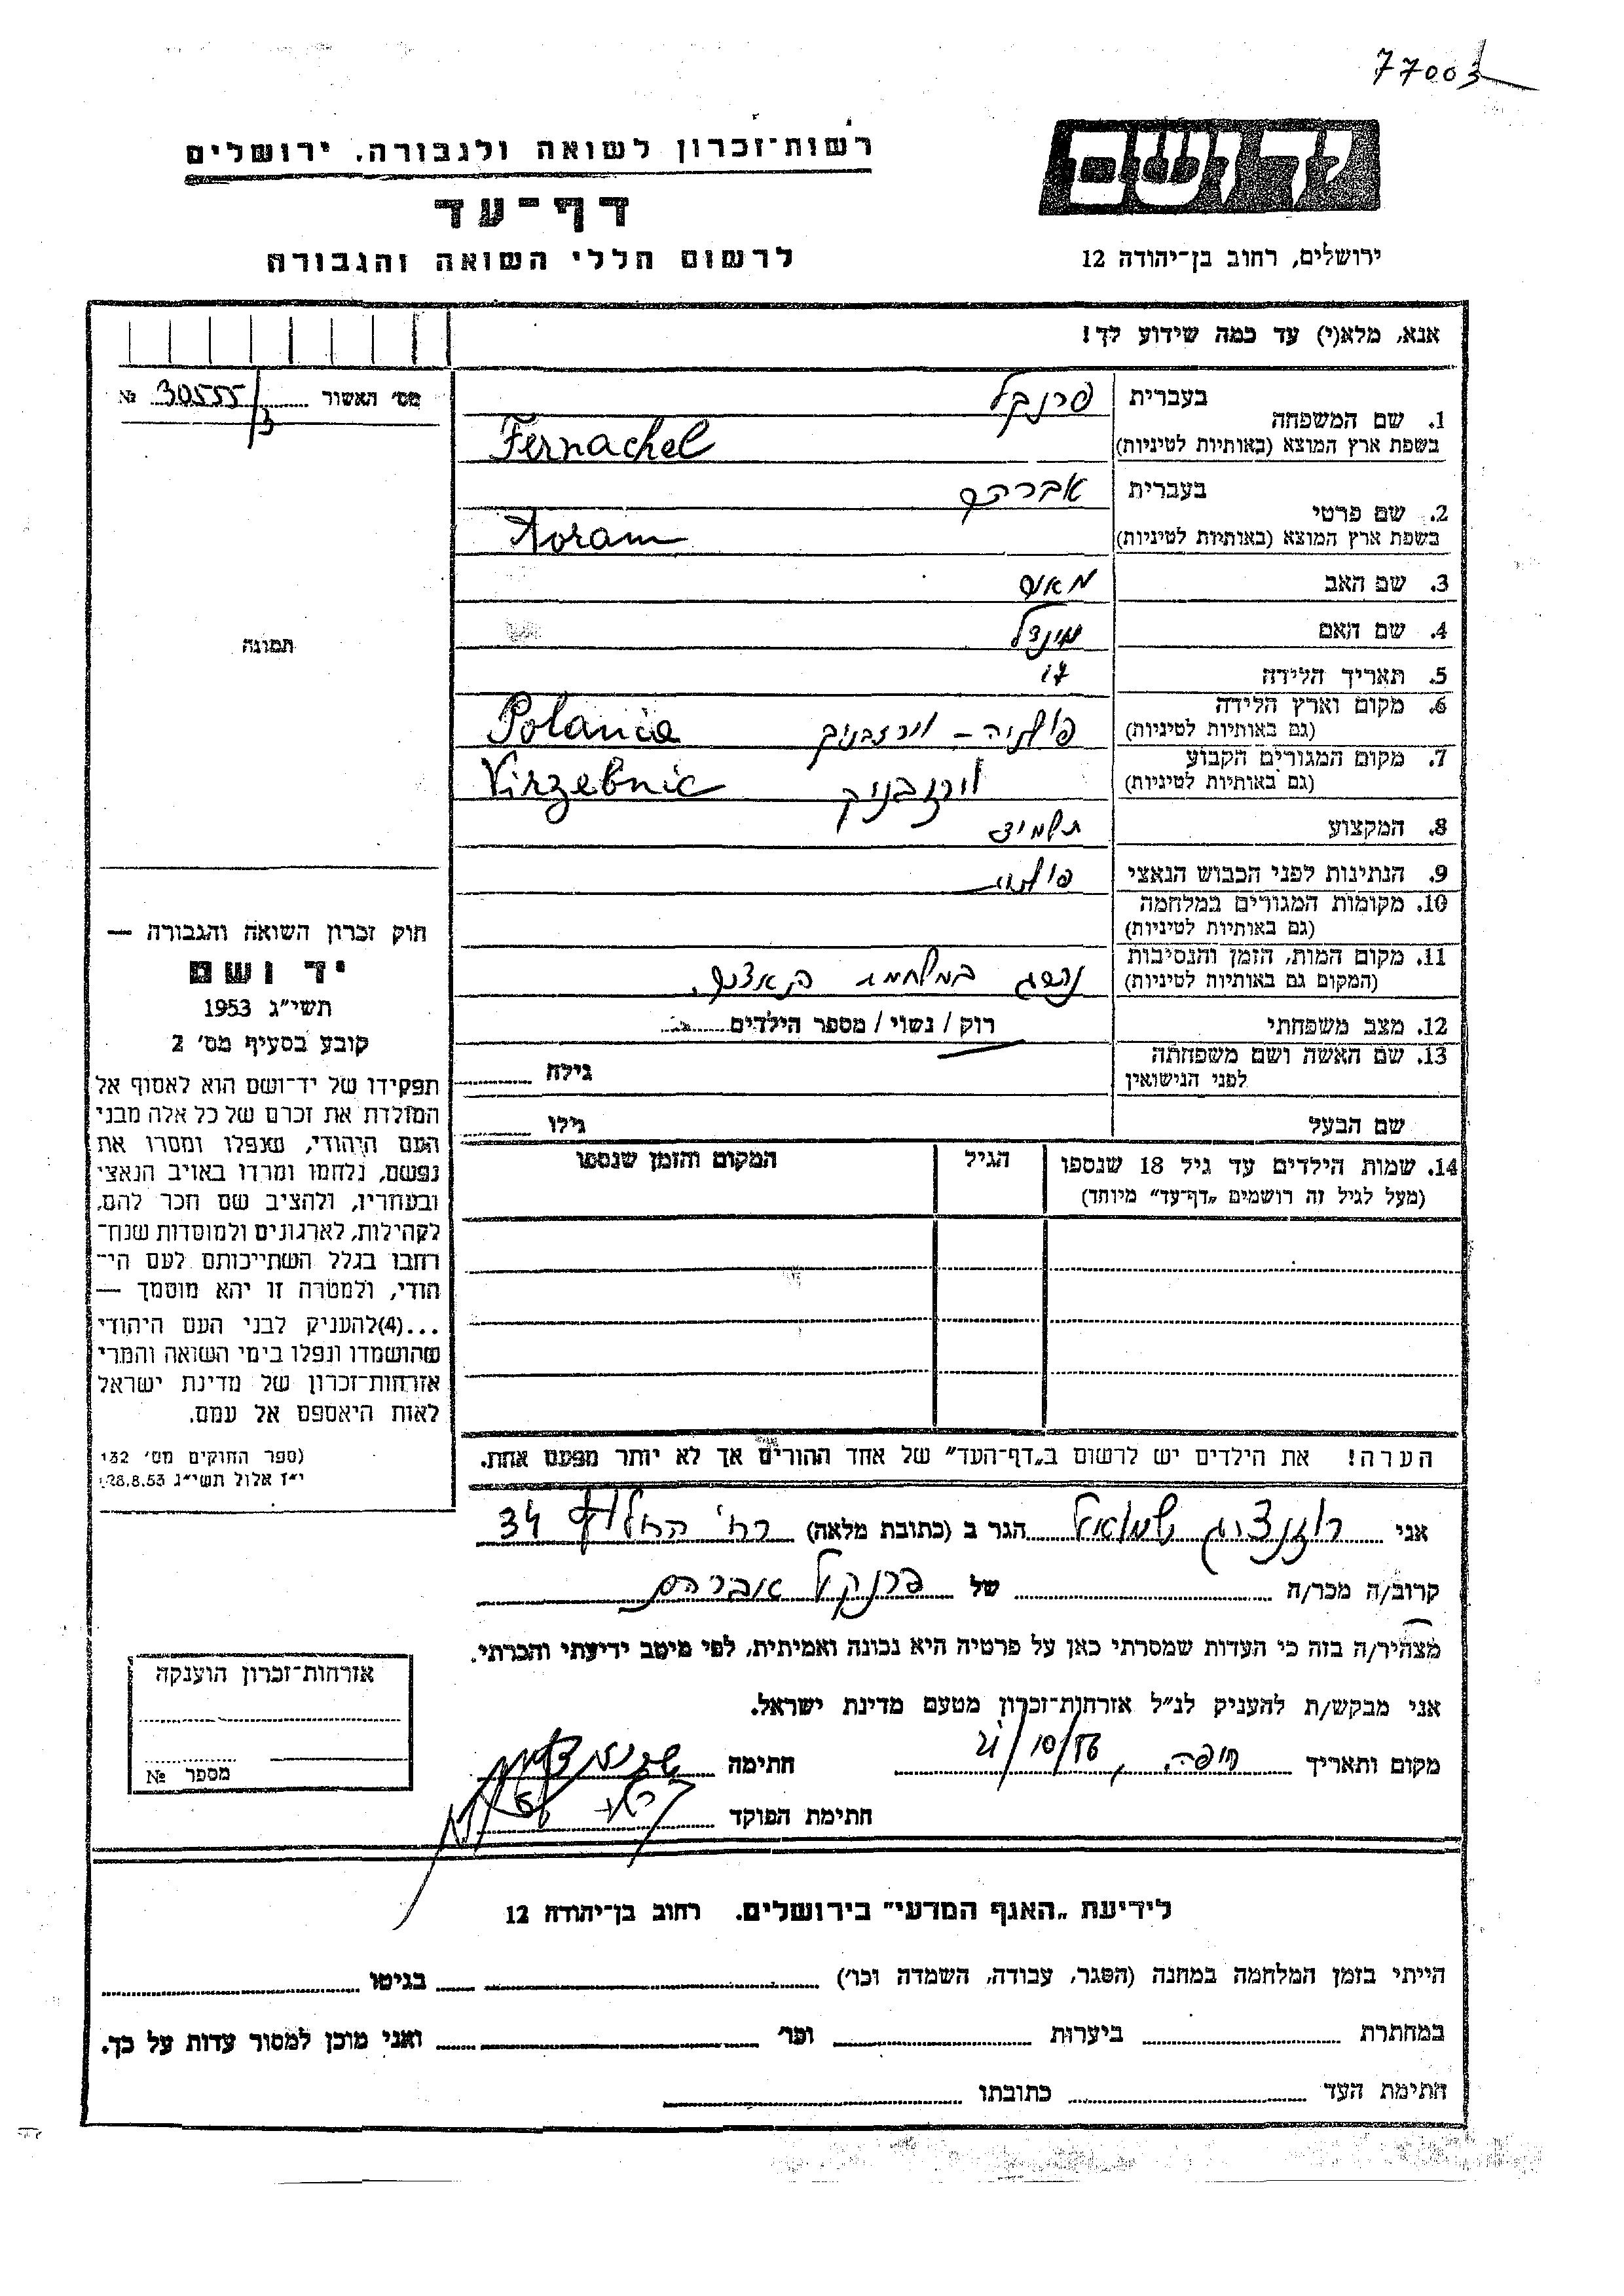 77003
ידושם
רשות־זכרון לשואה ולגבורה. ירושלים
דף־עד
לרשום חללי השואה והגבורה
ירושלים, רחוב בן־יהודה 12
אנא, מלא(י) עד כמה שידוע לך!
מס׳ האשור 30555/3 №
תמונה
1. שם המשפחה
בעברית פרנקל
בשפת ארץ המוצא (באותיות לטיניות) Fernachel
2. שם פרטי
בעברית אברהם
בשפת ארץ המוצא (באותיות לטיניות)
3. שם האב
4. שם האם מינדל
5. תאריך הלידה 17
6. מקום וארץ הלידה פולניה - וירזבניק Polania
(גם באותיות לטיניות)
7. מקום המגורים הקבוע וירזבניק Virzebnic
(גם באותיות לטיניות)
8. המקצוע תלמיד
9. הנתינות לפני הכבוש הנאצי פולנית
10. מקומות המגורים במלחמה
(גם באותיות לטיניות)
11. מקום המות, הזמן והנסיבות נהרג במלחמת
(המקום גם באותיות לטיניות)
12. מצב משפחתי רוק / נשוי / מספר הילדים
13. שם האשה ושם משפחתה
לפני הנישואין
גילה
שם הבעל
גילו
14. שמות הילדים עד גיל 18 שנספו
(מעל לגיל זה רושמים „דף־עד״ מיוחד)
הגיל
המקום והזמן שנספו
הערה! את הילדים יש לרשום ב„דף־העד״ של אחד ההורים אך לא יותר מפעם אחת.
חוק זכרון השואה והגבורה —
יד ושם
תשי״ג 1953
קובע בסעיף מס׳ 2
תפקידו של יד־ושם הוא לאסוף אל
המולדת את זכרם של כל אלה מבני
העם היהודי, שנפלו ומסרו את
נפשם, נלחמו ומרדו באויב הנאצי
ובעוזריו, ולהציב שם וזכר להם,
לקהילות, לארגונים ולמוסדות שנח־
רחבו בגלל השתייכותם לעם הי־
הודי, ולמטרה זו יהא מוסמך —
...(4)להעניק לבני העם היהודי
שהושמדו ונפלו בימי השואה והמרי
אזרחות־זכרון של מדינת ישראל
לאות היאספם אל עמם.
(ספר החוקים מס׳ 132
י״ז אלול תשי״ג 28.8.53)
אני רוזנצוויג שמואל הגר ב (כתובת מלאה) רח׳ החלוץ 34
קרוב/ה מכר/ה של פרנקל אברהם
מצהיר/ה בזה כי העדות שמסרתי כאן על פרטיה היא נכונה ואמיתית, לפי מיטב ידיעתי והכרתי.
אני מבקש/ת להעניק לנ״ל אזרחות־זכרון מטעם מדינת ישראל.
מקום ותאריך חיפה, 21/10/56 חתימה
חתימת הפוקד
אזרחות־זכרון הוענקה
מספר №
לידיעת „האגף המדעי״ בירושלים. רחוב בן־יהודה 12
הייתי בזמן המלחמה במחנה (הסגר, עבודה, השמדה וכו׳) בגיטו
במחתרת ביערות וכו׳ ואני מוכן למסור עדות על כך.
חתימת העד כתובתו